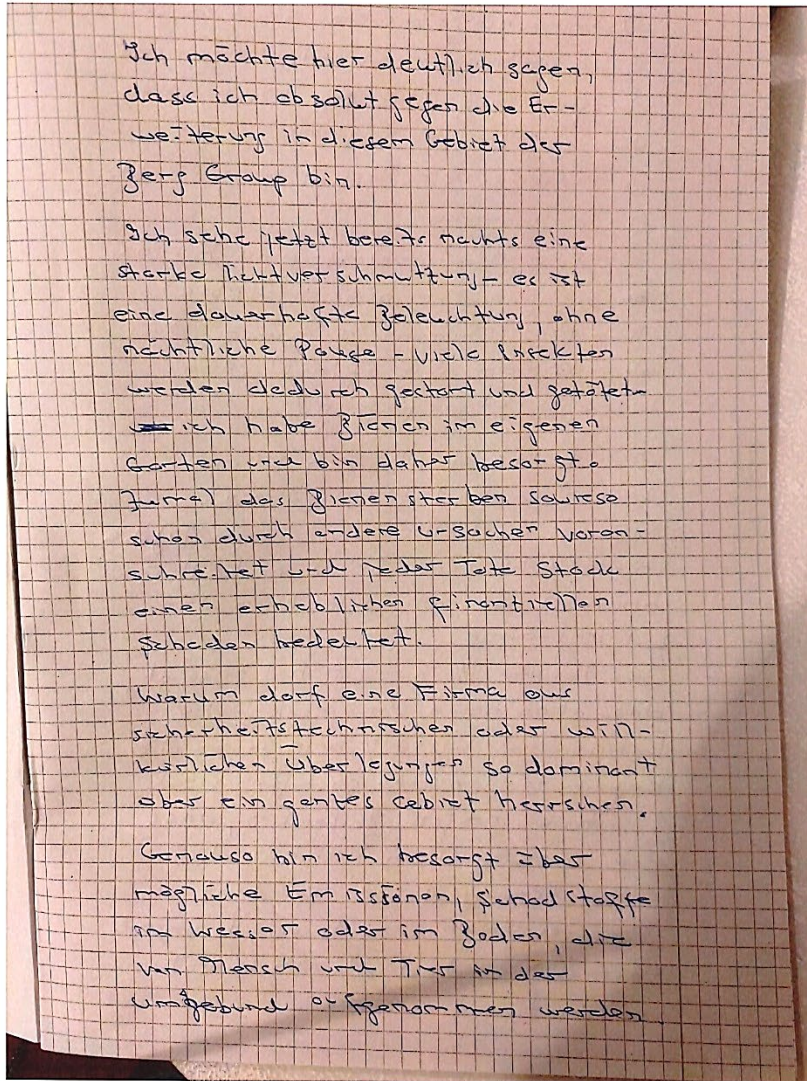 Ich möchte hier deutlich sagen,
dass ich absolut gegen die Er-
weiterung in diesem Gebiet der
Berg Group bin.
Ich sehe jetzt bereits nachts eine
starke lichtverschmutzung - es ist
eine dauerhafte Beleuchtung, ohne
nächtliche Pause - viele Insekten
werden dadurch gestört und getötet -
ich habe Bienen im eigenen
Garten und bin daher besorgt.
Zumal das Bienensterben sowieso
schon durch andere Ursachen voran-
schreitet und jeder Tote Stock
einen erheblichen finantiellen
Schaden bedeutet.
Warum darf eine Firma aus
sicherheitstechnischen oder will-
kürlichen Überlegungen so dominant
über ein gantes Gebiet herrschen.
Genauso bin ich besorgt über
mögliche Emissionen, Schadstoffe
im Wasser oder im Boden, die
von Mensch und Tier in der
Umgebund aufgenommen werden